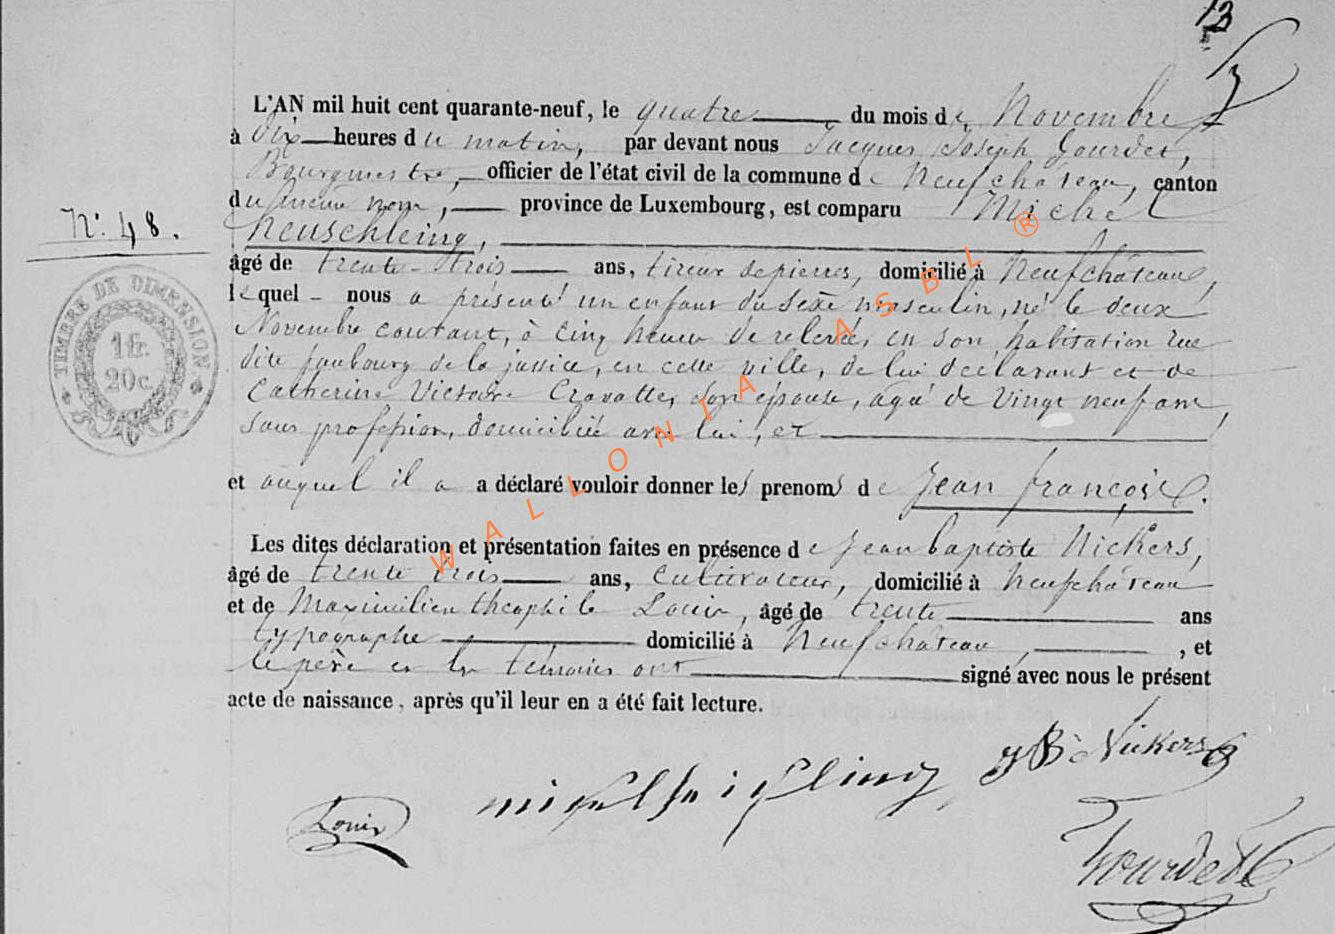 13
L'AN mil huit cent quarante-neuf, le quatre du mois de Novembre
à Dix heures du matin, par devant nous Jacques Joseph Gourdet,
Bourgmestre, officier de l'état civil de la commune de Neufchâteau, canton
du même nom, province de Luxembourg, est comparu Michel
N.° 48.
Neuschleing,
âgé de trente-trois ans, tireur de pierres, domicilié à Neufchâteau,
lequel nous a présenté un enfant du sexe masculin, né le deux
Novembre courant, à cinq heures de relevée, en son habitation rue
dite faubourg de la justice, en cette ville, de lui déclarant et de
Catherine Victoire Cravatte, son épouse, agée de Vingt neuf ans,
sans profession, domiciliée avec lui, et
et auquel il a a déclaré vouloir donner les prenoms de Jean françois.
Les dites déclaration et présentation faites en présence de Jean baptiste Nickers,
âgé de trente trois ans, cultivateur, domicilié à Neufchâteau
et de Maximilien théophile Louis, âgé de trente ans
typographe domicilié à Neufchâteau, , et
le père et les témoins ont signé avec nous le présent
acte de naissance, après qu'il leur en a été fait lecture.
TIMBRE DE DIMENSION
1 fr.
20 c.
WALLONIA ASBL ®
JB Nickers
Louis